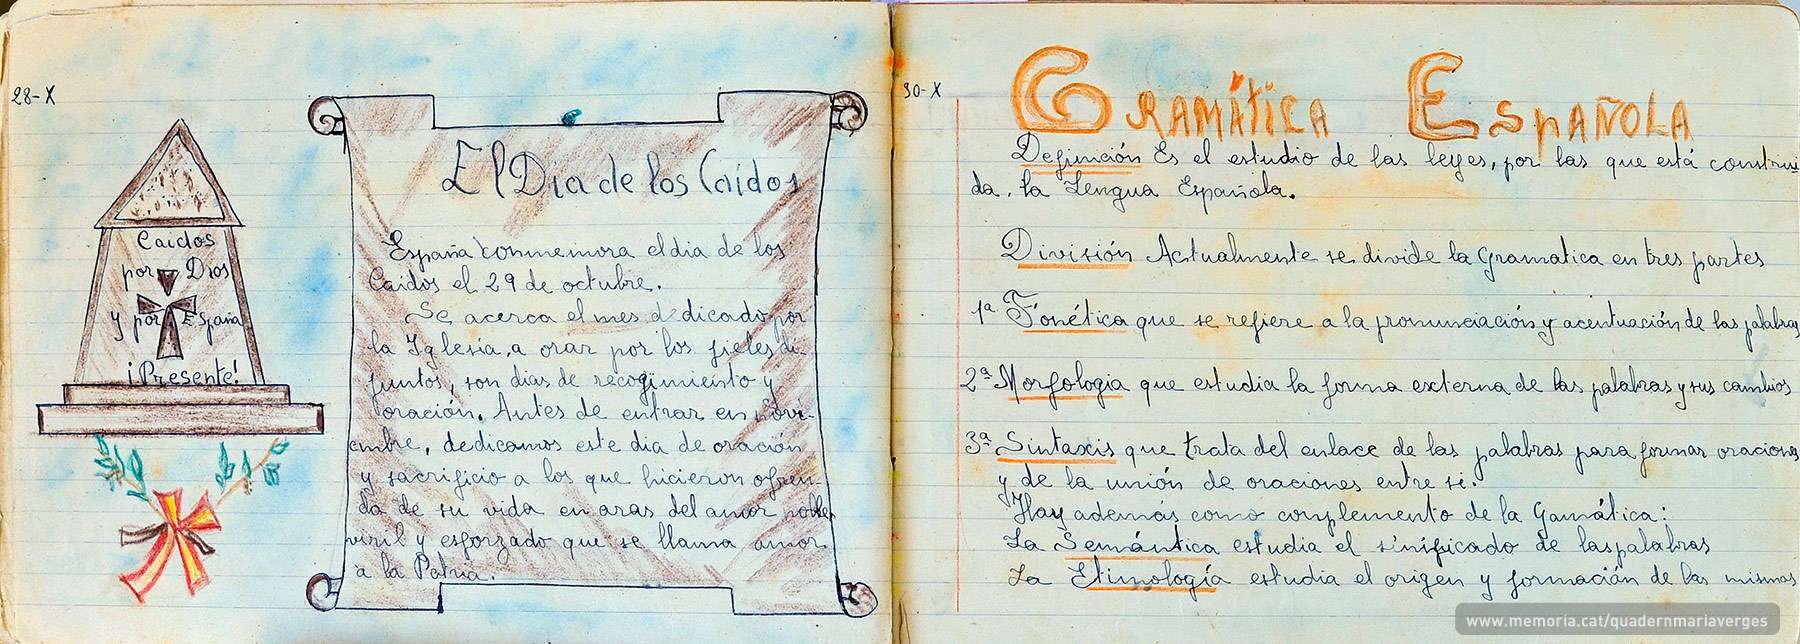 28-X
Caidos
por Dios
y por España
¡Presente!
El Dia de los Caídos
España conmemora el dia de los
Caidos el 29 de octubre.
Se acerca el mes dedicado por
la Iglesia, a orar por los fieles di-
funtos, son dias de recogimiento y
oración. Antes de entrar en Novi-
embre, dedicamos este dia de oración
y sacrificio a los que hicieron ofren-
da de su vida en aras del amor noble,
viril y esforzado que se llama amor
a la Patria.
30-X
Gramática Española
Definición Es el estudio de las leyes, por las que está construi
da, la Lengua Española.
División Actualmente se divide la Gramatica en tres partes
1ª Fónética que se refiere a la pronunciación y acentuación de las palabras
2ª Morfologia que estudia la forma externa de las palabras y sus cambios
3ª Sintaxis que trata del enlace de las palabras para formar oraciones
y de la unión de oraciones entre si.
Hay además como complemento de la Gamática:
La Semántica estudia el sinificado de las palabras
La Etimología estudia el origen y formación de las mismas
www.memoria.cat/quadernmariaverges